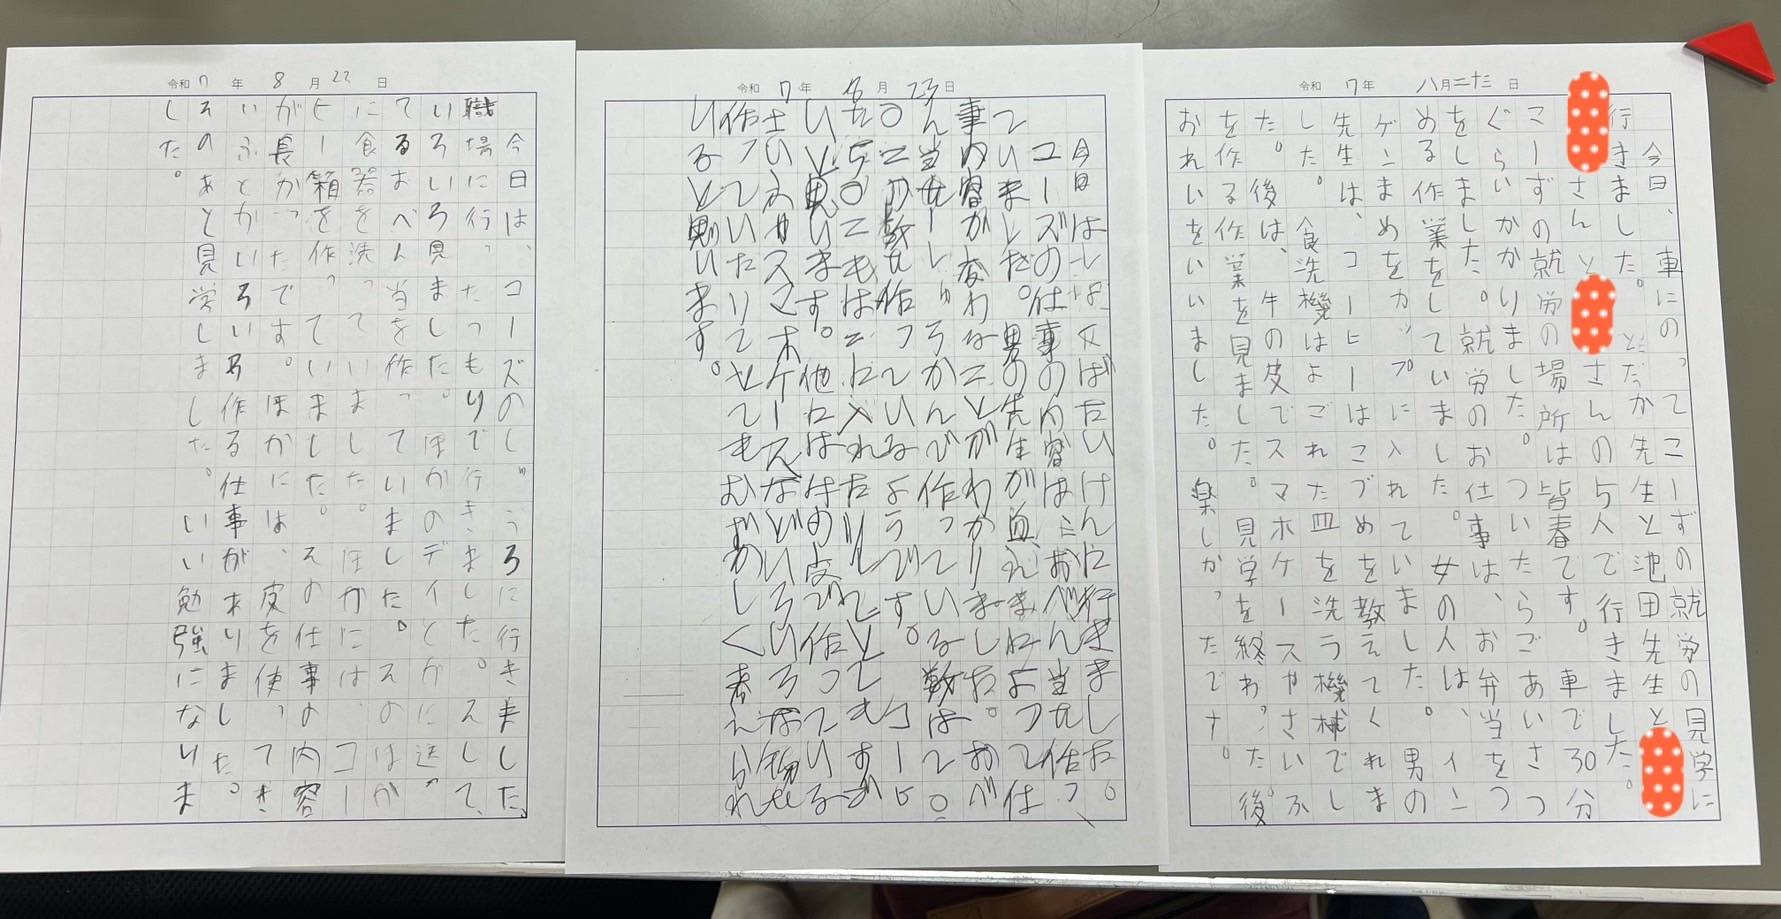 令和 7 年 八月二十三 日
今日、車にのってこーずの就労の見学に
行きました。だか先生と池田先生と
さんと さんの5人で行きました。
こーずの就労の場所は皆春です。車で30分
ぐらいかかりました。ついたらごあいさつ
をしました。就労のお仕事は、お弁当をつ
める作業をしていました。女の人は、イン
ゲンまめをカップに入れていました。男の
先生は、コーヒーはこづめを教えてくれま
した。食洗機はよごれた皿を洗う機械でし
た。後は、牛の皮でスマホケースやさいふ
を作る作業を見ました。見学を終わった後。
おれいをいいました。楽しかったです。
令和 7 年 8 月 23 日
今日はしばたいけんに行きました。
コーズのは事の内容はおべん当た作っ
ていました。男の先生が によっては
事内容が変わなことがわかりました。おべ
ん当 そかんで作っている数は20
の数た作っているようです。コーヒ
た50こもはこに入れたりしとてもすご
いと思います。他たはは の皮で作っている
さいふやスマホケースなどいろいろな物を
作っていたりしてとてもむずかしく考えられ
りると思います。
令和 7 年 8 月 22 日
今日は、コーズのし゛うろに行きました、
職場に行ったつもりで行きました。そして、
いろいろ見ました。ほかのデイとかに送っ
てるおべん当を作っていました。そのほか
に食器を洗っていました。ほかには、コー
ヒー箱を作っていました。その仕事の内容
が長かったです。ほかには、皮を使ってき
いふとかいろいろ作る仕事がありました。
そのあと見学しました。いい勉強になりま
した。